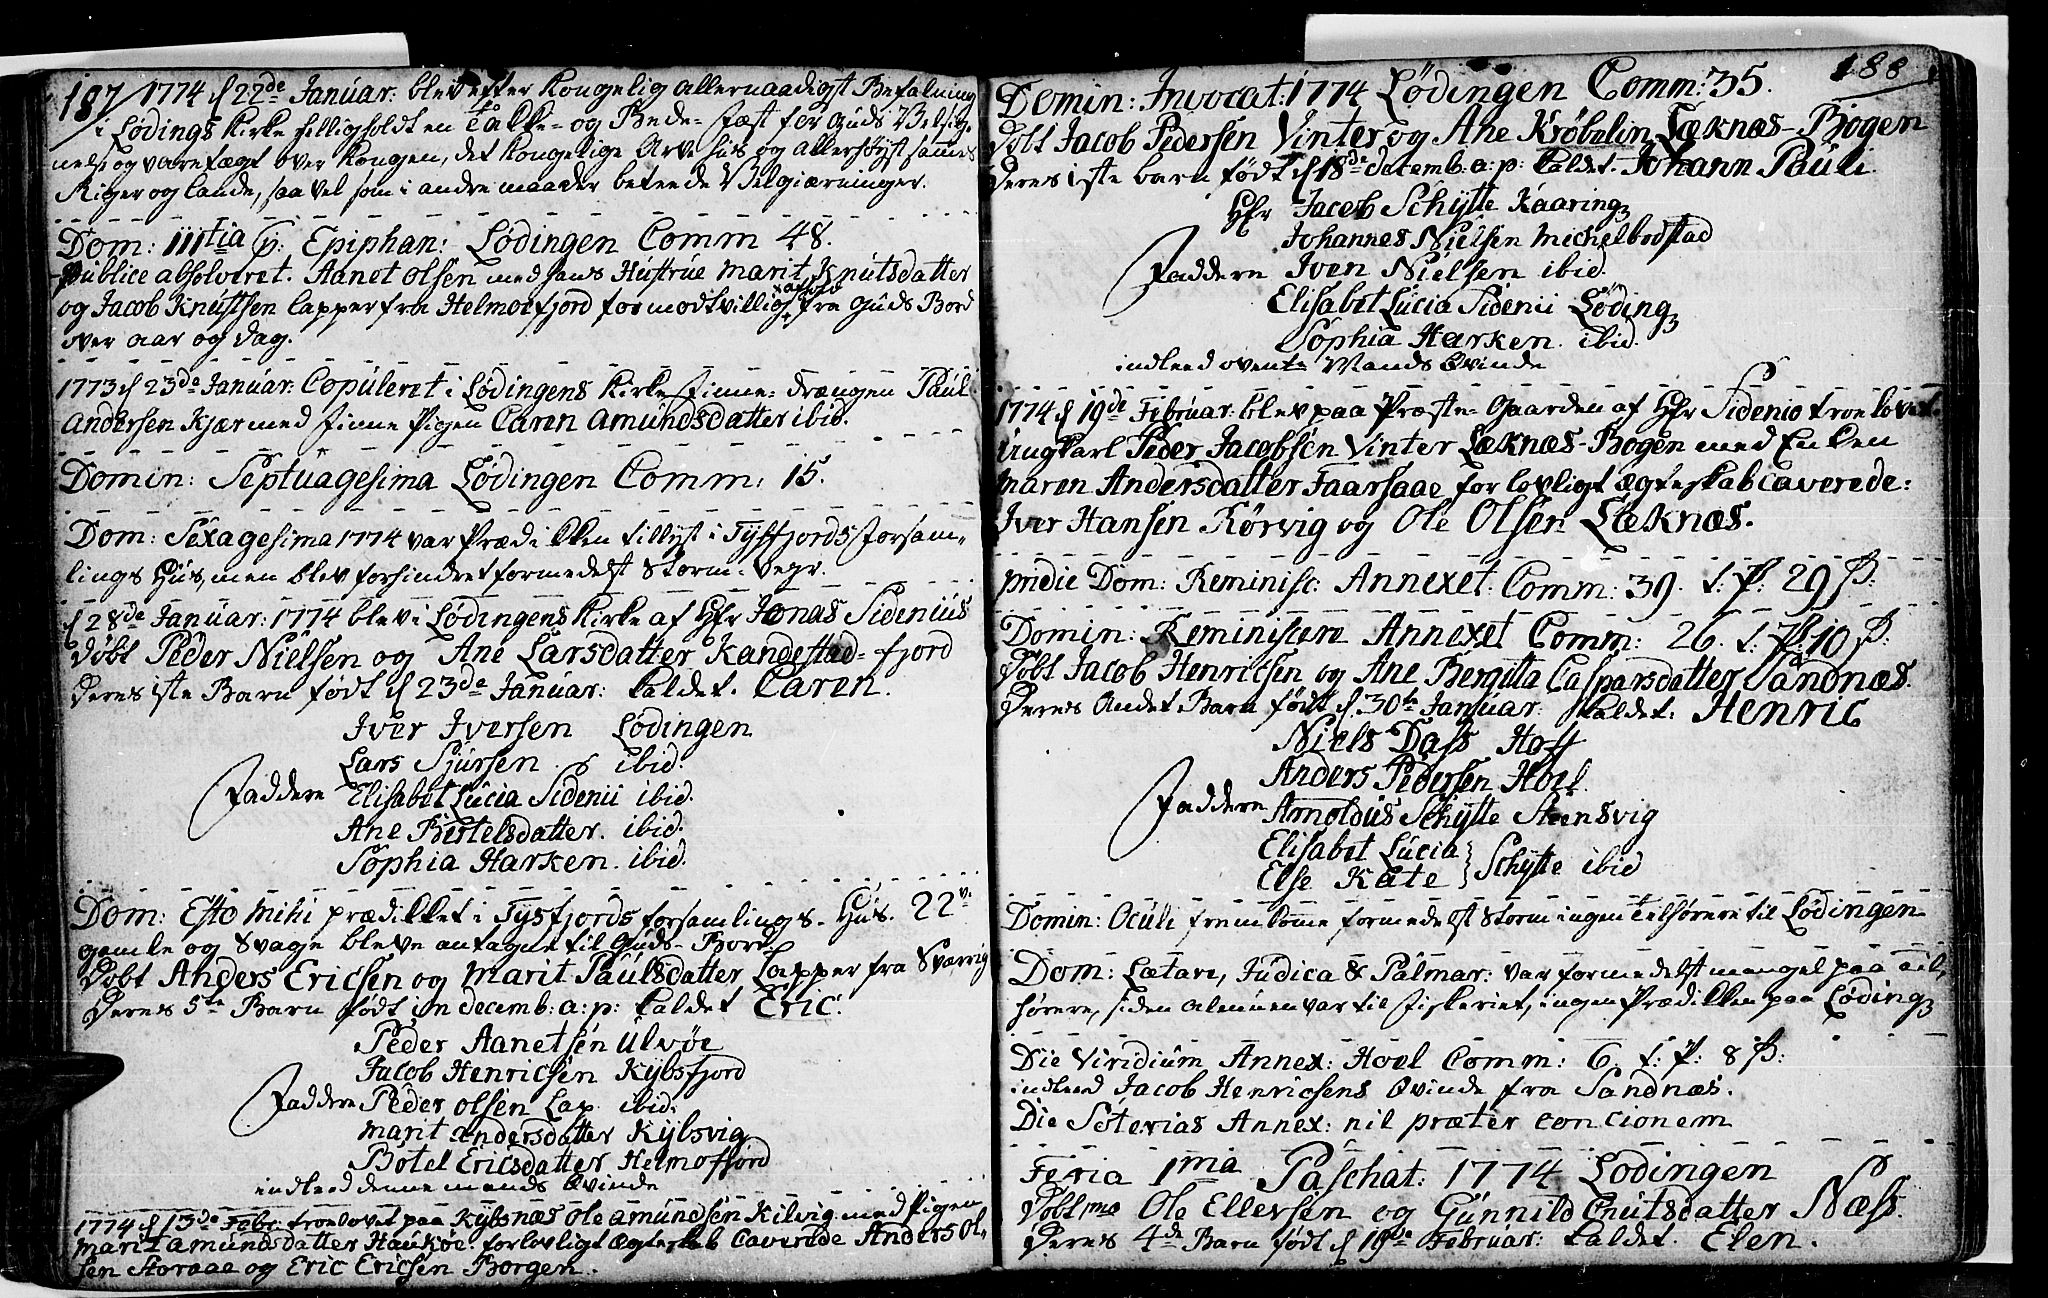 187/ 1774 d 22de Januar: blev efter Kongelig allernaadigst Befalning
i Lødings Kirke helligholdt en Takke- og Bede-Fæst for Guds Velsig-
nelse og varetægt over Kongen, det Kongelige Arve Hus og allerhøyst sammes
Riger og lande, saa vel som i andre maader beteede Velgiærninger.
Dom: IIItia p: Epiphan: Lødingen Comm 48.
Publice absolveret. Aanet Olsen med hans Hustrue Marit Knutsdatter
og Jacob Knutsen lapper fra Helmoefjord for modtvillig afhold fra Guds Bord
over aar og dag.
1773 d 23de Januar: Copuleret i Lødingens Kirke Finne-Drængen Paul
Andersen Kjær med Finne Pigen Caren Amundsdatter ibid.
Domin: Septuagesima Lødingen Comm: 15.
Dom: Sexagesima 1774 var Prædikken tillyst i Tysfjords Forsam-
lings Hus, men blev forhindret formedelst Storm-Vejr.
d 28de Januar: 1774 blev i Lødingens Kirke af Hr Jonas Sidenius
døbt Peder Nielsen og Ane Larsdatter Kandestad-fjord
Deres 1ste Barn født d 23de Januar: kaldet. Caren.
Iver Iversen Lødingen
Lars Sjursen ibid.
Faddere Elisabet Lucia Sidenii ibid.
Ane Bertelsdatter. ibid.
Sophia Harken. ibid.
Dom: Esto mihi prædikket i Tysfjords forsamlings-Hus. 22ve
gamle og Svage bleve antagne til Guds-Bord.
Døbt Anders Ericsen og Marit Paulsdatter Lapper fra Sværrig
Deres 5te Barn født in decemb: a: p: kaldet Eric.
Peder Aanetsen Ulvøe
Jacob Henricsen Kybsfjord
Faddere Peder Olsen Lap. ibid:
Marit Andersdatter Kybsvig
Botel Ericsdatter Helmofjord
indleed denne mands Qvinde
1774 d 13de Febr troelovet paa Kybsnæs Ole Amundsen Kilvig med Pigen
Marit Amundsdatter Haukøe. for lovligt ægteskab Caverede Anders Ol-
sen Storaae og Eric Ericsen Borgen.
188
Domin: Invocat: 1774 Lødingen Comm: 35.
Døbt Jacob Pedersen Vinter og Ane Krøbelin Læknæs-Bogen
Deres 1ste barn født d 18de decemb: a: p: kaldet. Johann Pauli
Hr Jacob Schytte Kaaring
Johannes Nielsen Michelbodstad
Faddere Iven Nielsen ibid.
Elisabet Lucia Sidenii Løding
Sophia Harken. ibid.
indleed ovente Mands Qvinde
1774 d 19de Februar: blev paa Præste-Gaarden af Hr Sidenio troelovet.
Ungkarl Peder Jacobsen Vinter Læknæs-Bogen med Enken
Maren Andersdatter Faarsaae for lovligt ægteskab caverede:
Iver Hansen Rørvig og Ole Olsen Læknæs.
pridie Dom: Reminisc: Annexet Comm: 39. t. P: 29 ß:
Domin: Reminiscere Annexet Comm: 26. t. P: 10 ß:
Døbt Jacob Henricsen og Ane Bergitta Caspersdatter Sandnæs.
Deres Andet Barn født d. 30te Januar: kaldet: Henric
Niels Dass Hoff
Anders Pedersen Hoel.
Faddere Arnoldus Schytte Steensvig
Elisabet Lucia } Schytte ibid
Else Kate
Domin: Oculi fremkome formedelst Storm ingen tilhørere til Lødingen
Dom: Lætare, Judica & Palmar: var formedelst mangel paa til-
hørere, siden almuen var til Fiskeriet, ingen Prædikken paa Løding
Die Viridium Annex: Hoel Comm: 6. t: P: 8 ß:
indleed Jacob Henricsens Qvinde fra Sandnæs.
Die Soterias Annex: nil præter concionem
Feria 1ma Paschat: 1774 Lodingen
Døbt mo Ole Ellevsen og Gunnild Cnutsdatter Næss.
Deres 4de Barn født d 19de Februar: kaldet. Elen.